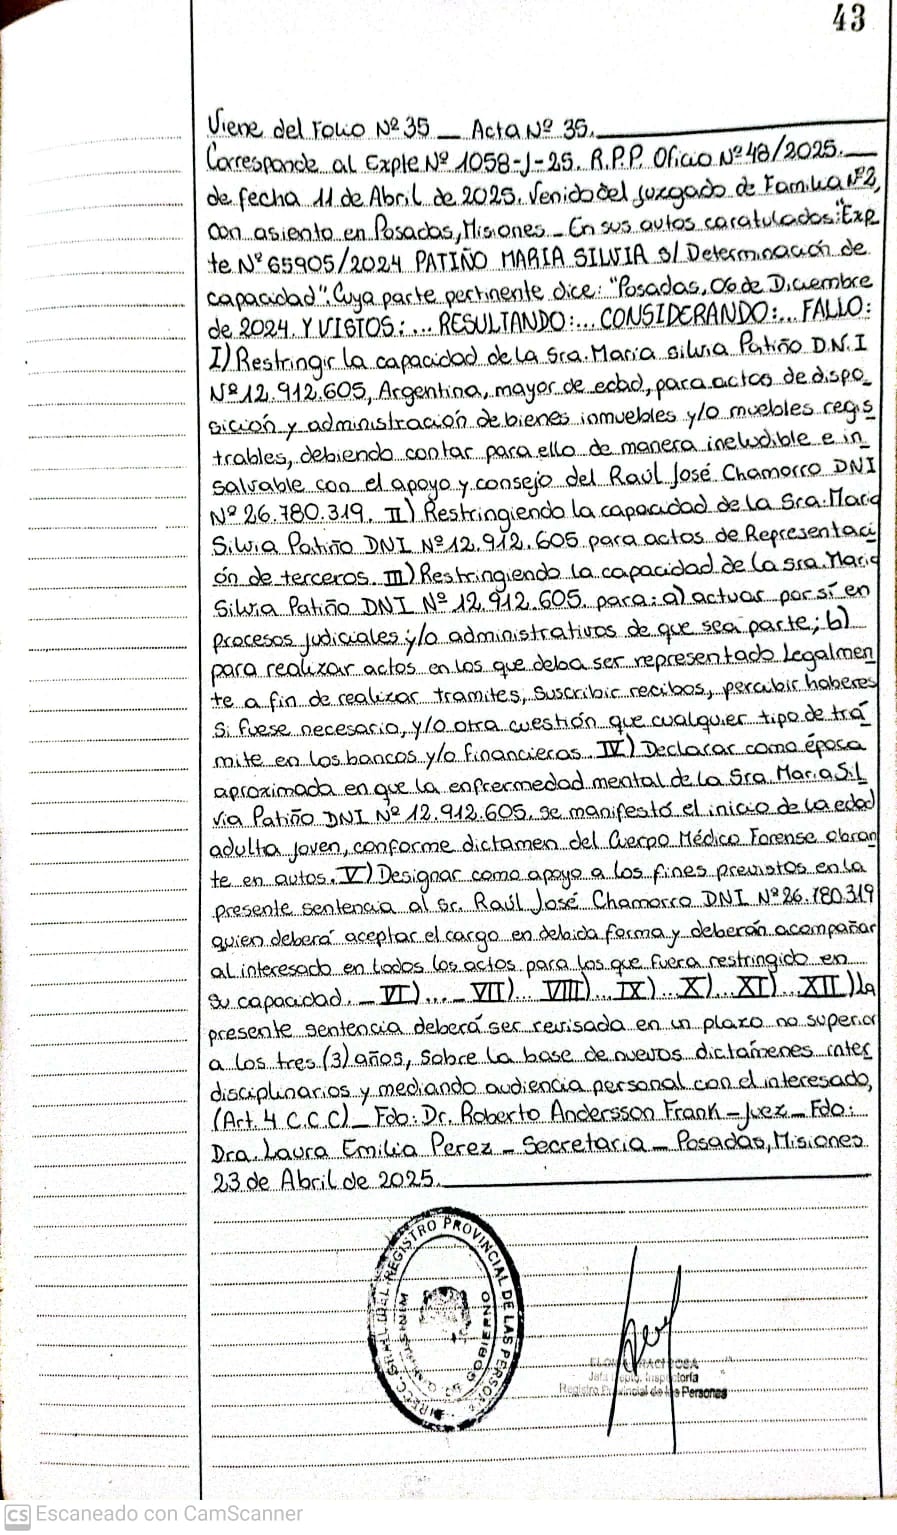 43
Viene del Folio Nº 35 _ Acta Nº 35.
Corresponde al Expte Nº 1058-J-25. R.P.P. Oficio Nº 48/2025.
de fecha 11 de Abril de 2025. Venido del juzgado de Familia Nº 2,
con asiento en Posadas, Misiones _ En sus autos caratulados: "Exp
te Nº 65905/2024 PATIÑO MARIA SILVIA s/ Determinación de
capacidad". Cuya parte pertinente dice: "Posadas, 06 de Diciembre
de 2024. Y VISTOS:... RESULTANDO:... CONSIDERANDO:... FALLO:
I) Restringir la capacidad de la Sra. Maria Silvia Patiño D.N.I
Nº 12.912.605, Argentina, mayor de edad, para actos de dispo_
sición y administración de bienes inmuebles y/o muebles regis
trables, debiendo contar para ello de manera ineludible e in_
salvable con el apoyo y consejo del Raúl José Chamorro DNI
Nº 26.780.319. II) Restringiendo la capacidad de la Sra. Maria
Silvia Patiño DNI Nº 12.912.605 para actos de Representaci
ón de terceros. III) Restringiendo la capacidad de la Sra. Maria
Silvia Patiño DNI Nº 12.912.605. para: a) actuar por sí en
procesos judiciales y/o administrativos de que sea parte; b)
para realizar actos en los que deba ser representado legalmen
te a fin de realizar tramites, suscribir recibos, percibir haberes
si fuese necesario, y/o otra cuestión que cualquier tipo de trá
mite en los bancos y/o financieras IV) Declarar como época
aproximada en que la enfrermedad mental de la Sra. Maria Sil
via Patiño DNI Nº 12.912.605. se manifestó el inicio de la edad
adulta joven, conforme dictamen del Cuerpo Médico Forense obran
te en autos. V) Designar como apoyo a los fines previstos en la
presente sentencia al Sr. Raúl José Chamorro DNI Nº 26.780.319
quien deberá aceptar el cargo en debida forma y deberán acompañar
al interesado en todos los actos para los que fuera restringido en
su capacidad. _ VI)... _ VII)... VIII)... IX)... X)... XI)... XII) la
presente sentencia deberá ser revisada en un plazo no superior
a los tres (3) años, sobre la base de nuevos dictámenes inter
disciplinarios y mediando audiencia personal con el interesado,
(Art. 4 C.C.C) _ Fdo: Dr. Roberto Andersson Frank _ Juez _ Fdo:
Dra. Laura Emilia Perez _ Secretaria _ Posadas, Misiones
23 de Abril de 2025.
REGISTRO PROVINCIAL DE LAS PERSONAS
GOBIERNO
Registro Provincial de las Personas
CS Escaneado con CamScanner